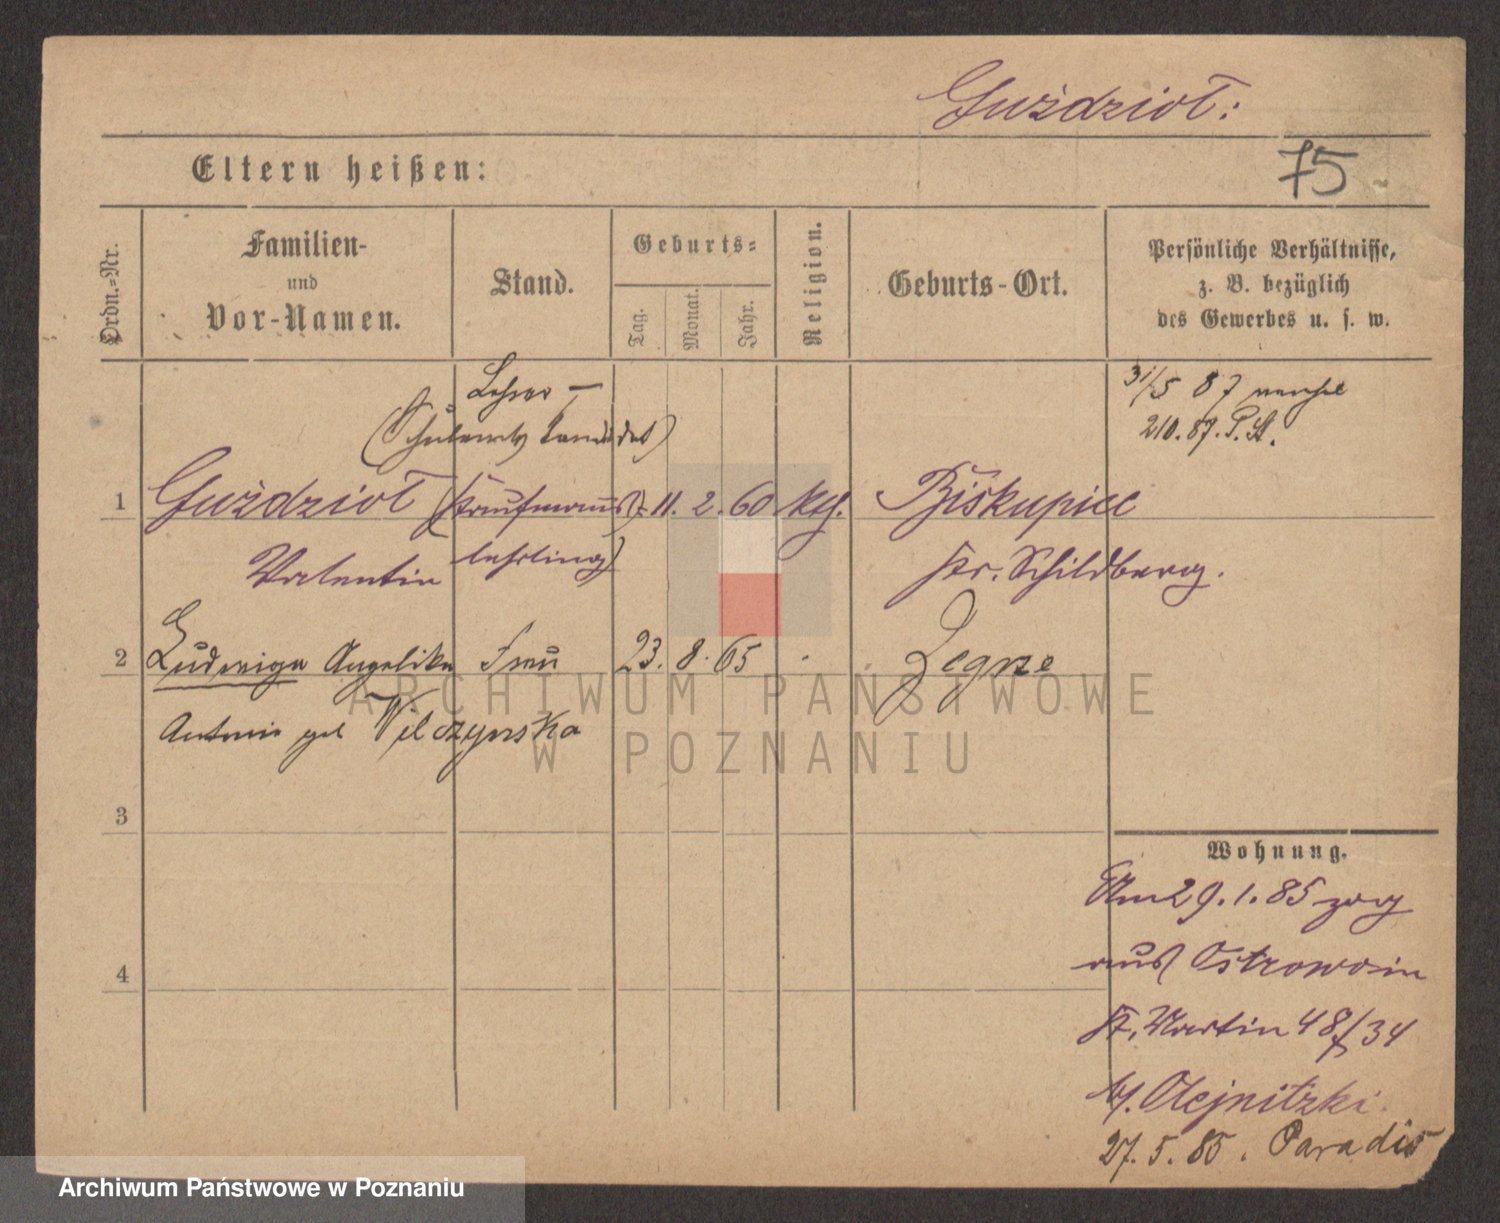 Guździoł:
75
Eltern heißen:
Ordn.-Nr.
Familien-
und
Vor-Namen.
Stand.
Geburts-
Tag.
Monat.
Jahr.
Religion.
Geburts-Ort.
Persönliche Verhältnisse,
z. B. bezüglich
des Gewerbes u. s. w.
Lehrer –
(Schulamts Kandidat)
31/5 87
210.87. P. A.
1 Guździoł (Kaufmanns)- 11. 2. 60 kth. Biskupice
Valentin lehrling) Kr. Schildberg.
2 Ludwiga Angelika Frau 23. 8. 65 Zegrze
Antonie geb Wilczynska
3
4
Wohnung.
Am 29. 1. 85 zog
aus Ostrowo in
St. Martin 48/34
b/. Olejnitzki.
27. 5. 85. Paradis
ARCHIWUM PAŃSTWOWE
W POZNANIU
Archiwum Państwowe w Poznaniu